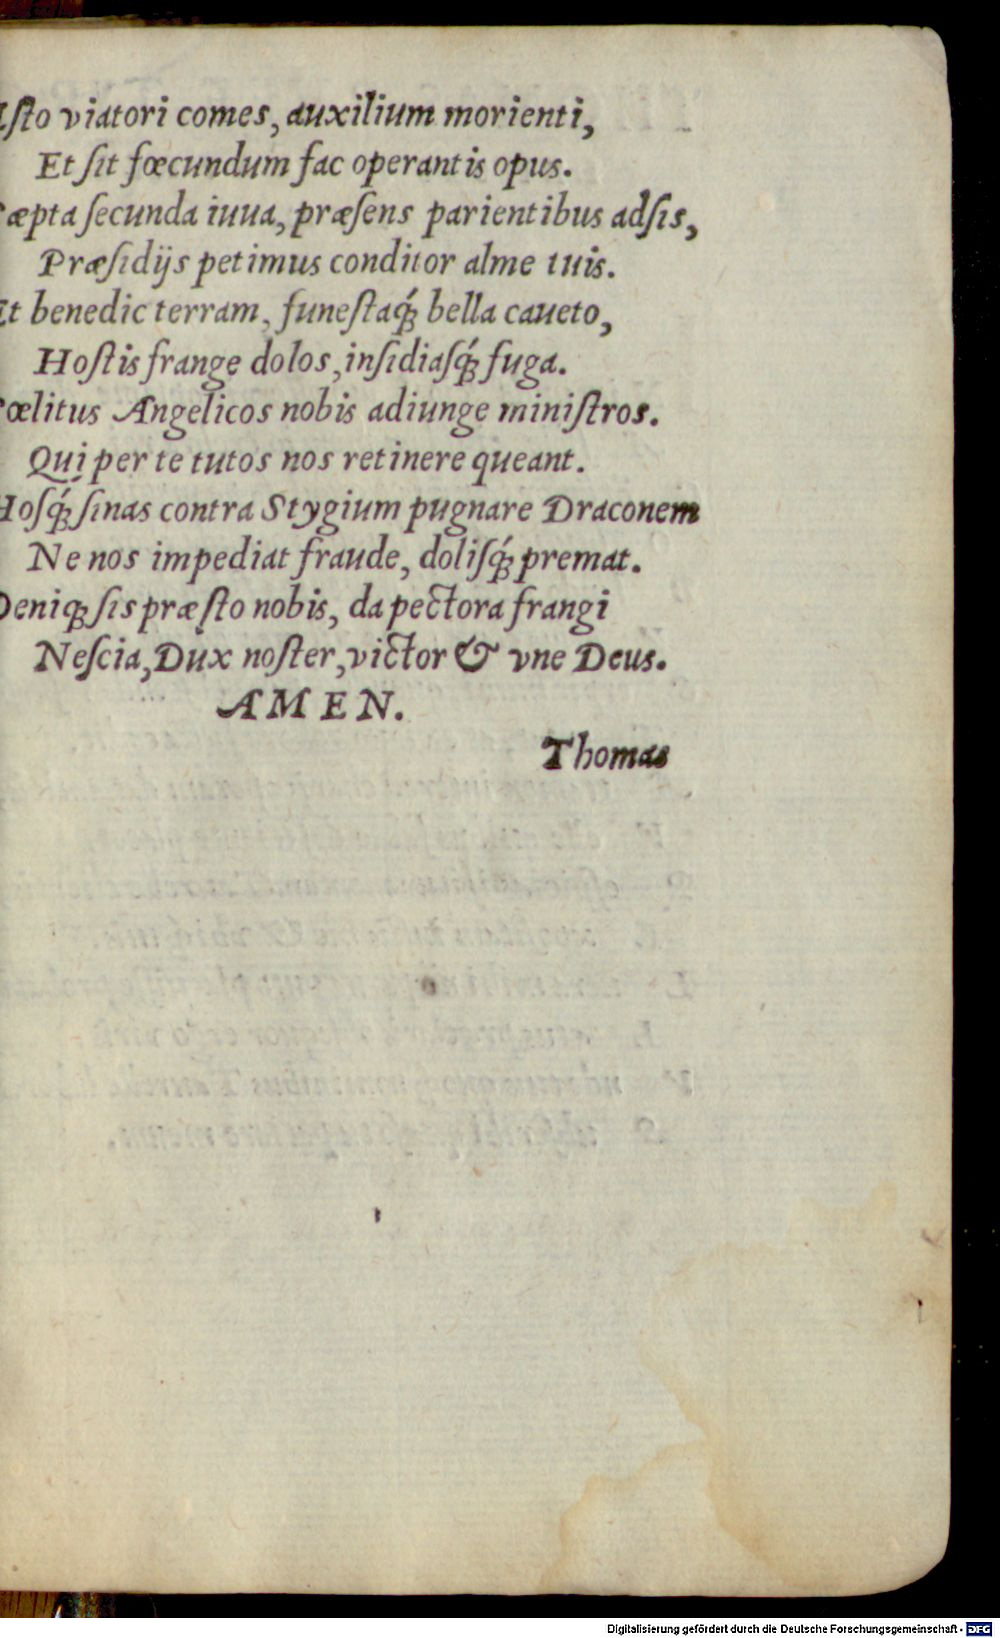 Isto viatori comes, auxilium morienti,
Et sit fœcundum fac operantis opus.
Cæpta secunda iuua, præsens parientibus adsis,
Præsidijs petimus conditor alme tuis.
Et benedic terram, funestaq́; bella caueto,
Hostis frange dolos, insidiasq́; fuga.
Cœlitus Angelicos nobis adiunge ministros.
Qui per te tutos nos retinere queant.
Hosq́; sinas contra Stygium pugnare Draconem
Ne nos impediat fraude, dolisq́; premat.
Deniq; sis præsto nobis, da pectora frangi
Nescia, Dux noster, victor & vne Deus.
AMEN.
Thomas
Digitalisierung gefördert durch die Deutsche Forschungsgemeinschaft - DFG